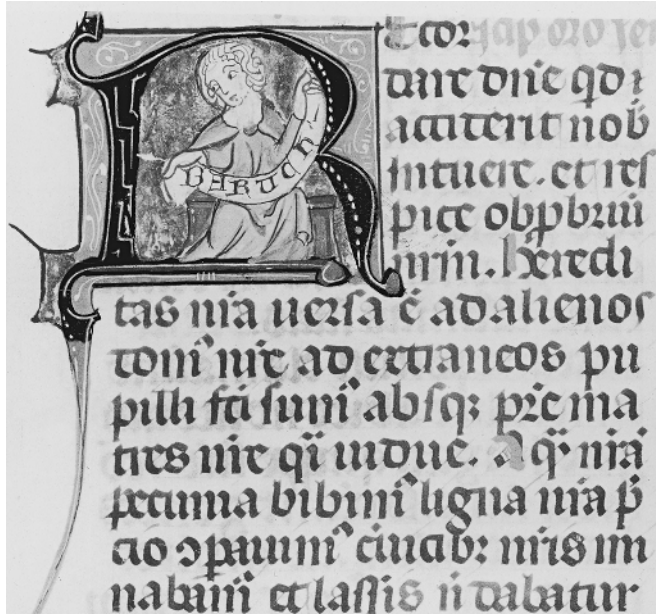 Recor
dare dñe qd i
acciderit nob
intuere. et res
pice obpbriū
nrm. heredi
BARUCH
tas nrā uersa ē ad alienos
domꝰ nrē ad extraneos pu
pilli fcī sumꝰ absqꝫ prē ma
tres nrē qi uidue. Aqꝫ nrā
pecunia bibimꝰ ligna nrā p̄
cio ꝯpauimꝰ ceruicibꝫ nr̄is mi
nabamꝰ et lassis n̄ dabatur